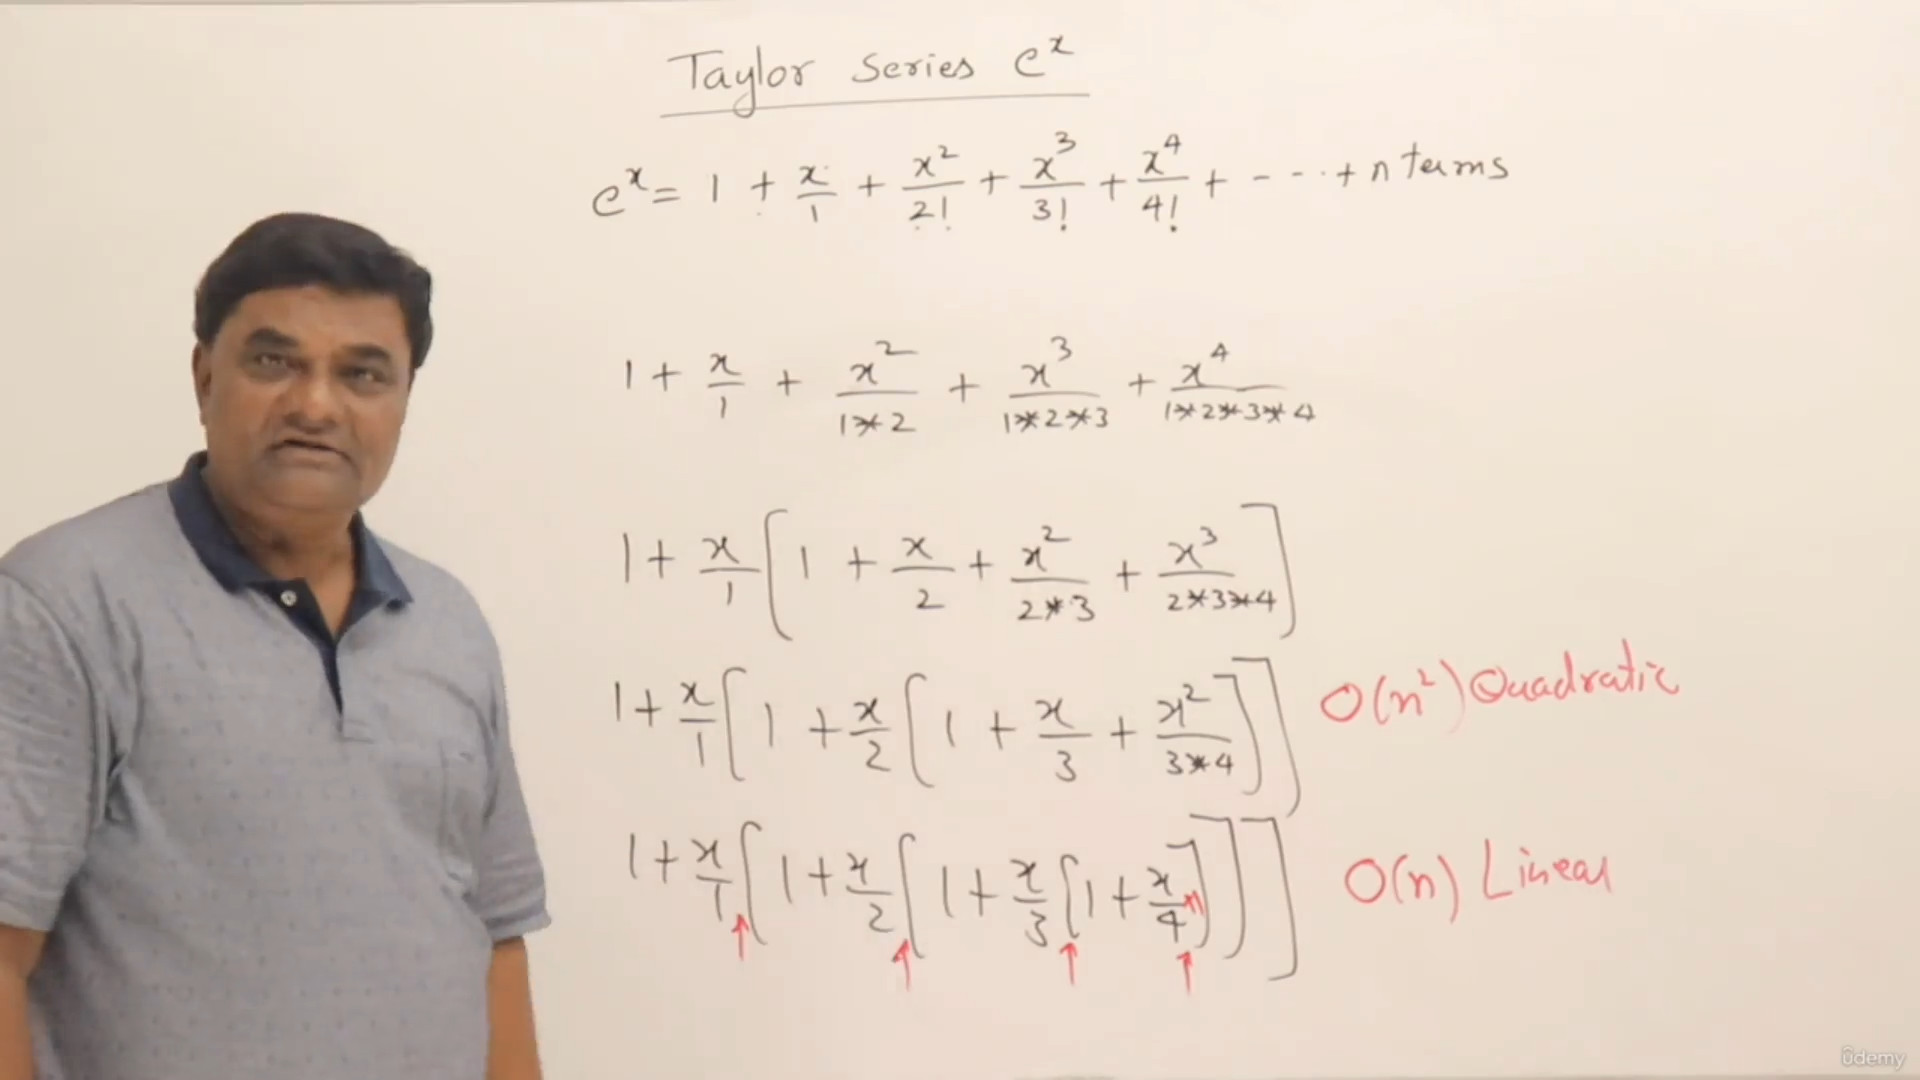 Taylor Series e^x
e^x = 1 + x/1 + x^2/2! + x^3/3! + x^4/4! + - - - + n terms
1 + x/1 + x^2/(1*2) + x^3/(1*2*3) + x^4/(1*2*3*4)
1 + x/1 [ 1 + x/2 + x^2/(2*3) + x^3/(2*3*4) ]
1 + x/1 [ 1 + x/2 [ 1 + x/3 + x^2/(3*4) ] ] O(n^2) Quadratic
1 + x/1 [ 1 + x/2 [ 1 + x/3 [ 1 + x/4 n ] ] ] O(n) Linear
ûdemy